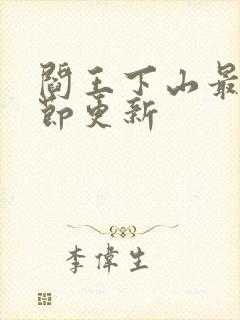 閻王下山最
節更新
李偉生